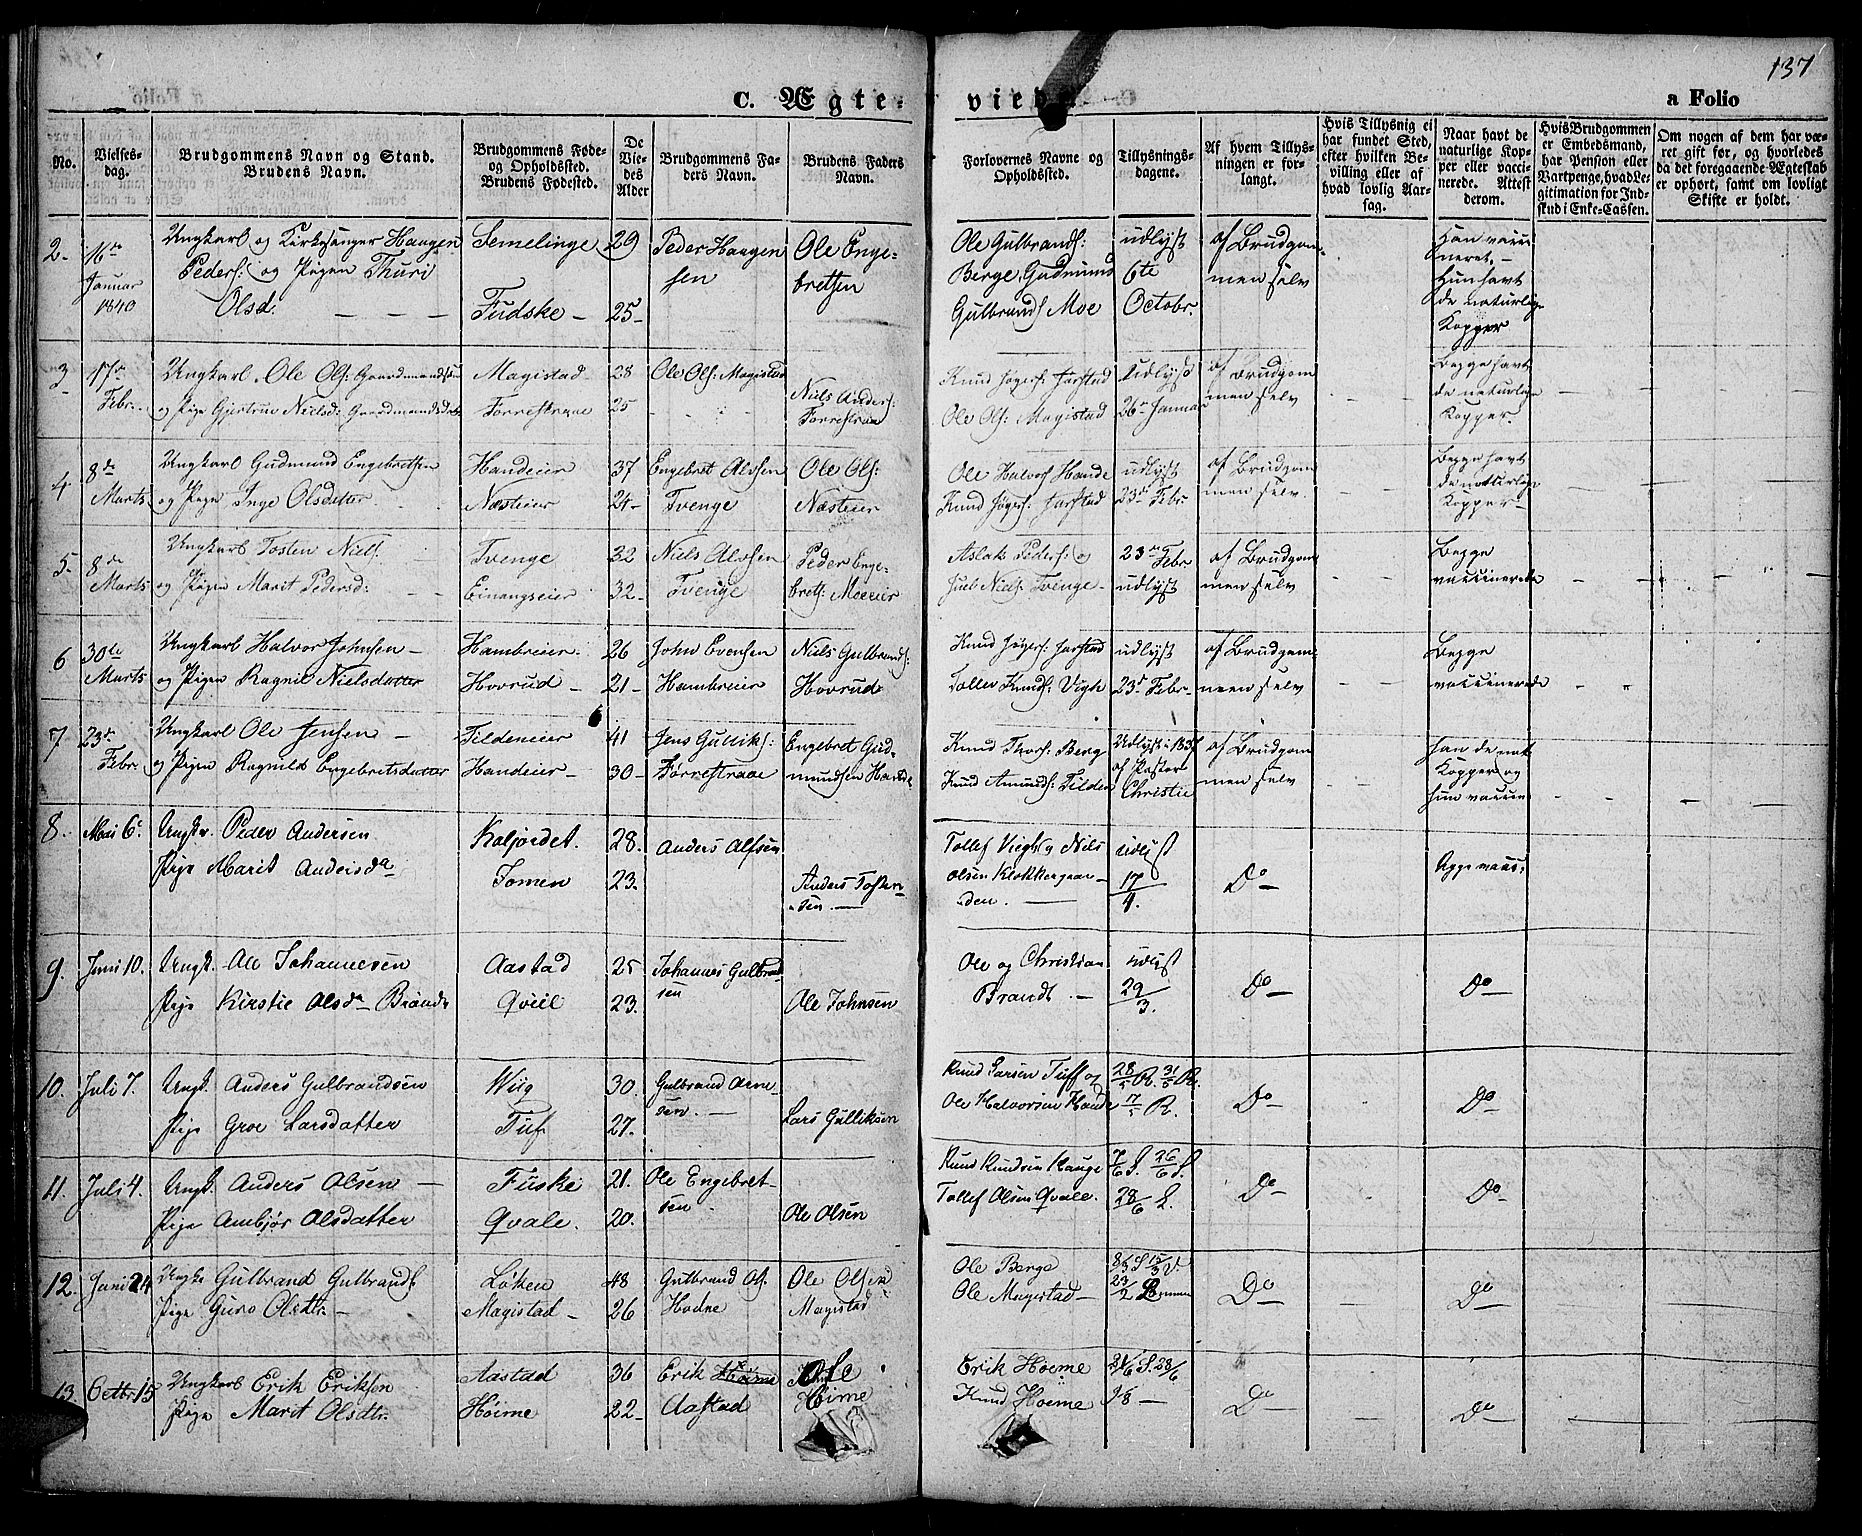 137
C. Ægte-
viede.
a Folio
No.
Vielses-
dag.
Brudgommens Navn og Stand.
Brudens Navn.
Brudgommens Føde-
og Opholdssted.
Brudens Fødested.
De
Vie-
des
Alder
Brudgommens Fa-
ders Navn.
Brudens Faders
Navn.
Forlovernes Navne og
Opholdssted.
Tillysnings-
dagene.
Af hvem Tillys-
ningen er for-
langt.
Hvis Tillysnig ei
har fundet Sted,
efter hvilken Be-
villing eller af
hvad lovlig Aar-
sag.
Naar havt de
naturlige Kop-
per eller vacci-
nerede. Attest
derom.
Hvis Brudgommen
er Embedsmand,
har Pension eller
Vartpenge, hvad Le-
gitimation for Ind-
skud i Enke-Cassen.
Om nogen af dem har væ-
ret gift før, og hvorledes
da det foregaaende Ægteskab
er ophørt, samt om lovligt
Skifte er holdt.
2. 16de Januar 1840 Ungkarl og Kirkesanger Haagen Peders: og Pigen Thuri Olsd. Semelinge Fudske 29 25 Peder Haagensen Ole Engebretsen Ole Gulbrands: Berge, Gudmund Gulbrands Moe udlyst 6te Octobr. af Brudgommen selv Han vaccineret, Hun havt de naturlige Kopper
3 17de Febr. Ungkarl Ole Ols: Gaardmandssøn og Pige Gjertrue Nielsd: Gaardmandsdatter Magistad Forrestraae 28 25 Ole Ols: Magistad Niels Anders: Forrestraae Knud Jøgers: Jarstad Ole Ols: Magistad udlyst 26de Januar af Brudgommen selv Begge havt de naturlige Kopper.
4 8de Marts Ungkarl Gudmund Engebretsen og Pige Inge Olsdatter Handeier Næsteier 37 24 Engebret Alvsen Tvenge Ole Ols: Næsteier Ole Halvors Hande Knud Jøgers: Jarstad udlyst 23de Febr af Brudgommen selv. Begge havt de naturlige Kopper
5. 8de Marts Ungkarl Tosten Niels. og Pigen Marit Pedersd: Tvenge Einangseier 32 32 Niels Alvsen Tvenge Peder Engebrets: Moeeier Aslak Peders: og Juel Niels: Tvenge 23de Febr udlyst af Brudgommen selv Begge vaccinerede
6 30te Marts Ungkarl Halvor Johnsen og Pigen Ragnil Nielsdatter Hambreier Hovrud 26 21 John Evensen Hambreier Niels Gulbrands: Hovrud Knud Jøgers: Jarstad Tollev Knuds: Vigh udlyst 23de Febr. af Brudgommen selv Begge vaccinerede
7 23de Febr. Ungkarl Ole Jensen og Pigen Ragnild Engebretsdatter Tildeneier Handeier 41 30 Jens Gulliks: Førrestraae Engebret Gudmundsen Hande Knud Thors: Berg Knud Amunds: Tilden Udlyst i 1837 af Pastor Christie af Brudgommen selv han de nat Kopper og hun vaccin
8. Mai 6. Ungk. Peder Andersen Pige Marit Andersda Koljordet. Tomen 28. 23. Anders Alfsen Anders Tostensen. Tollef Viegh og Niels Olsen Klokkergaarden. udlyst 17/4. Do Begge vacc:
9. Juni 10. Ungk. Ole Johannesen Pige Kirstie Olsda Brandt Aastad Qviel 25 23. Johannes Gulbrandsen Ole Johnsen Ole og Christian Brandt. udlyst 29/3. Do Do
10. Juli 7. Ungk. Anders Gulbrandsen Pige Groe Larsdatter Wiig Tuf 30. 27. Gulbrand Arnesen. Lars Gulliksen Knud Larsen Tuff og Ole Halvorsen Hande 28/5 R. 31/5 R. 17/5 R. Do Do
11. Juli 4. Ungk. Anders Olsen Pige Ambjør Olsdatter Fuske Qvale. 21. 20. Ole Engebretsen Ole Olsen Knud Knudsen Hauge Tollef Olsen Qvale. 7/6 S. 26/6 S. 28/6 S. Do Do
12. Juni 24 Ungk Gulbrand Gulbrands Pige Guro Olsdtr. Løken Magistad 48 26 Gulbrand Ols: Hodne Ole Olsen Magistad Ole Berge Ole Magistad 8/3 S 15/3 V. 23/2 Do Do
13. Octbr. 15 Ungkarl Erik Eriksen Pige Marit Olsdtr. Aastad Høime 36 22 Erik Høime Aastad Ole Høime Erik Hoeme Knud Hoeme 21/6 S. 28/6 Do Do